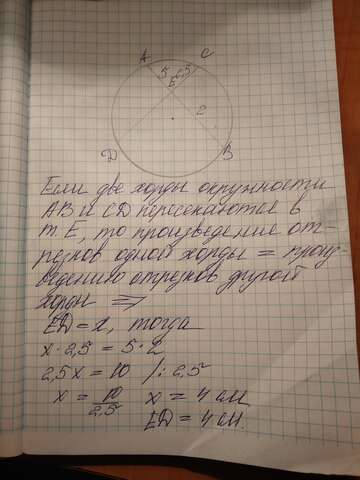 A C
5 2,5
E
2
D B
Если две хорды окружности
АВ и CD пересекаются в
т. Е, то произведение от-
резков одной хорды = произ-
ведению отрезков другой
хорды ⇒
ED = x, тогда
x · 2,5 = 5 · 2
2,5x = 10 /: 2,5
x = 10/2,5 x = 4 см
ED = 4 см.